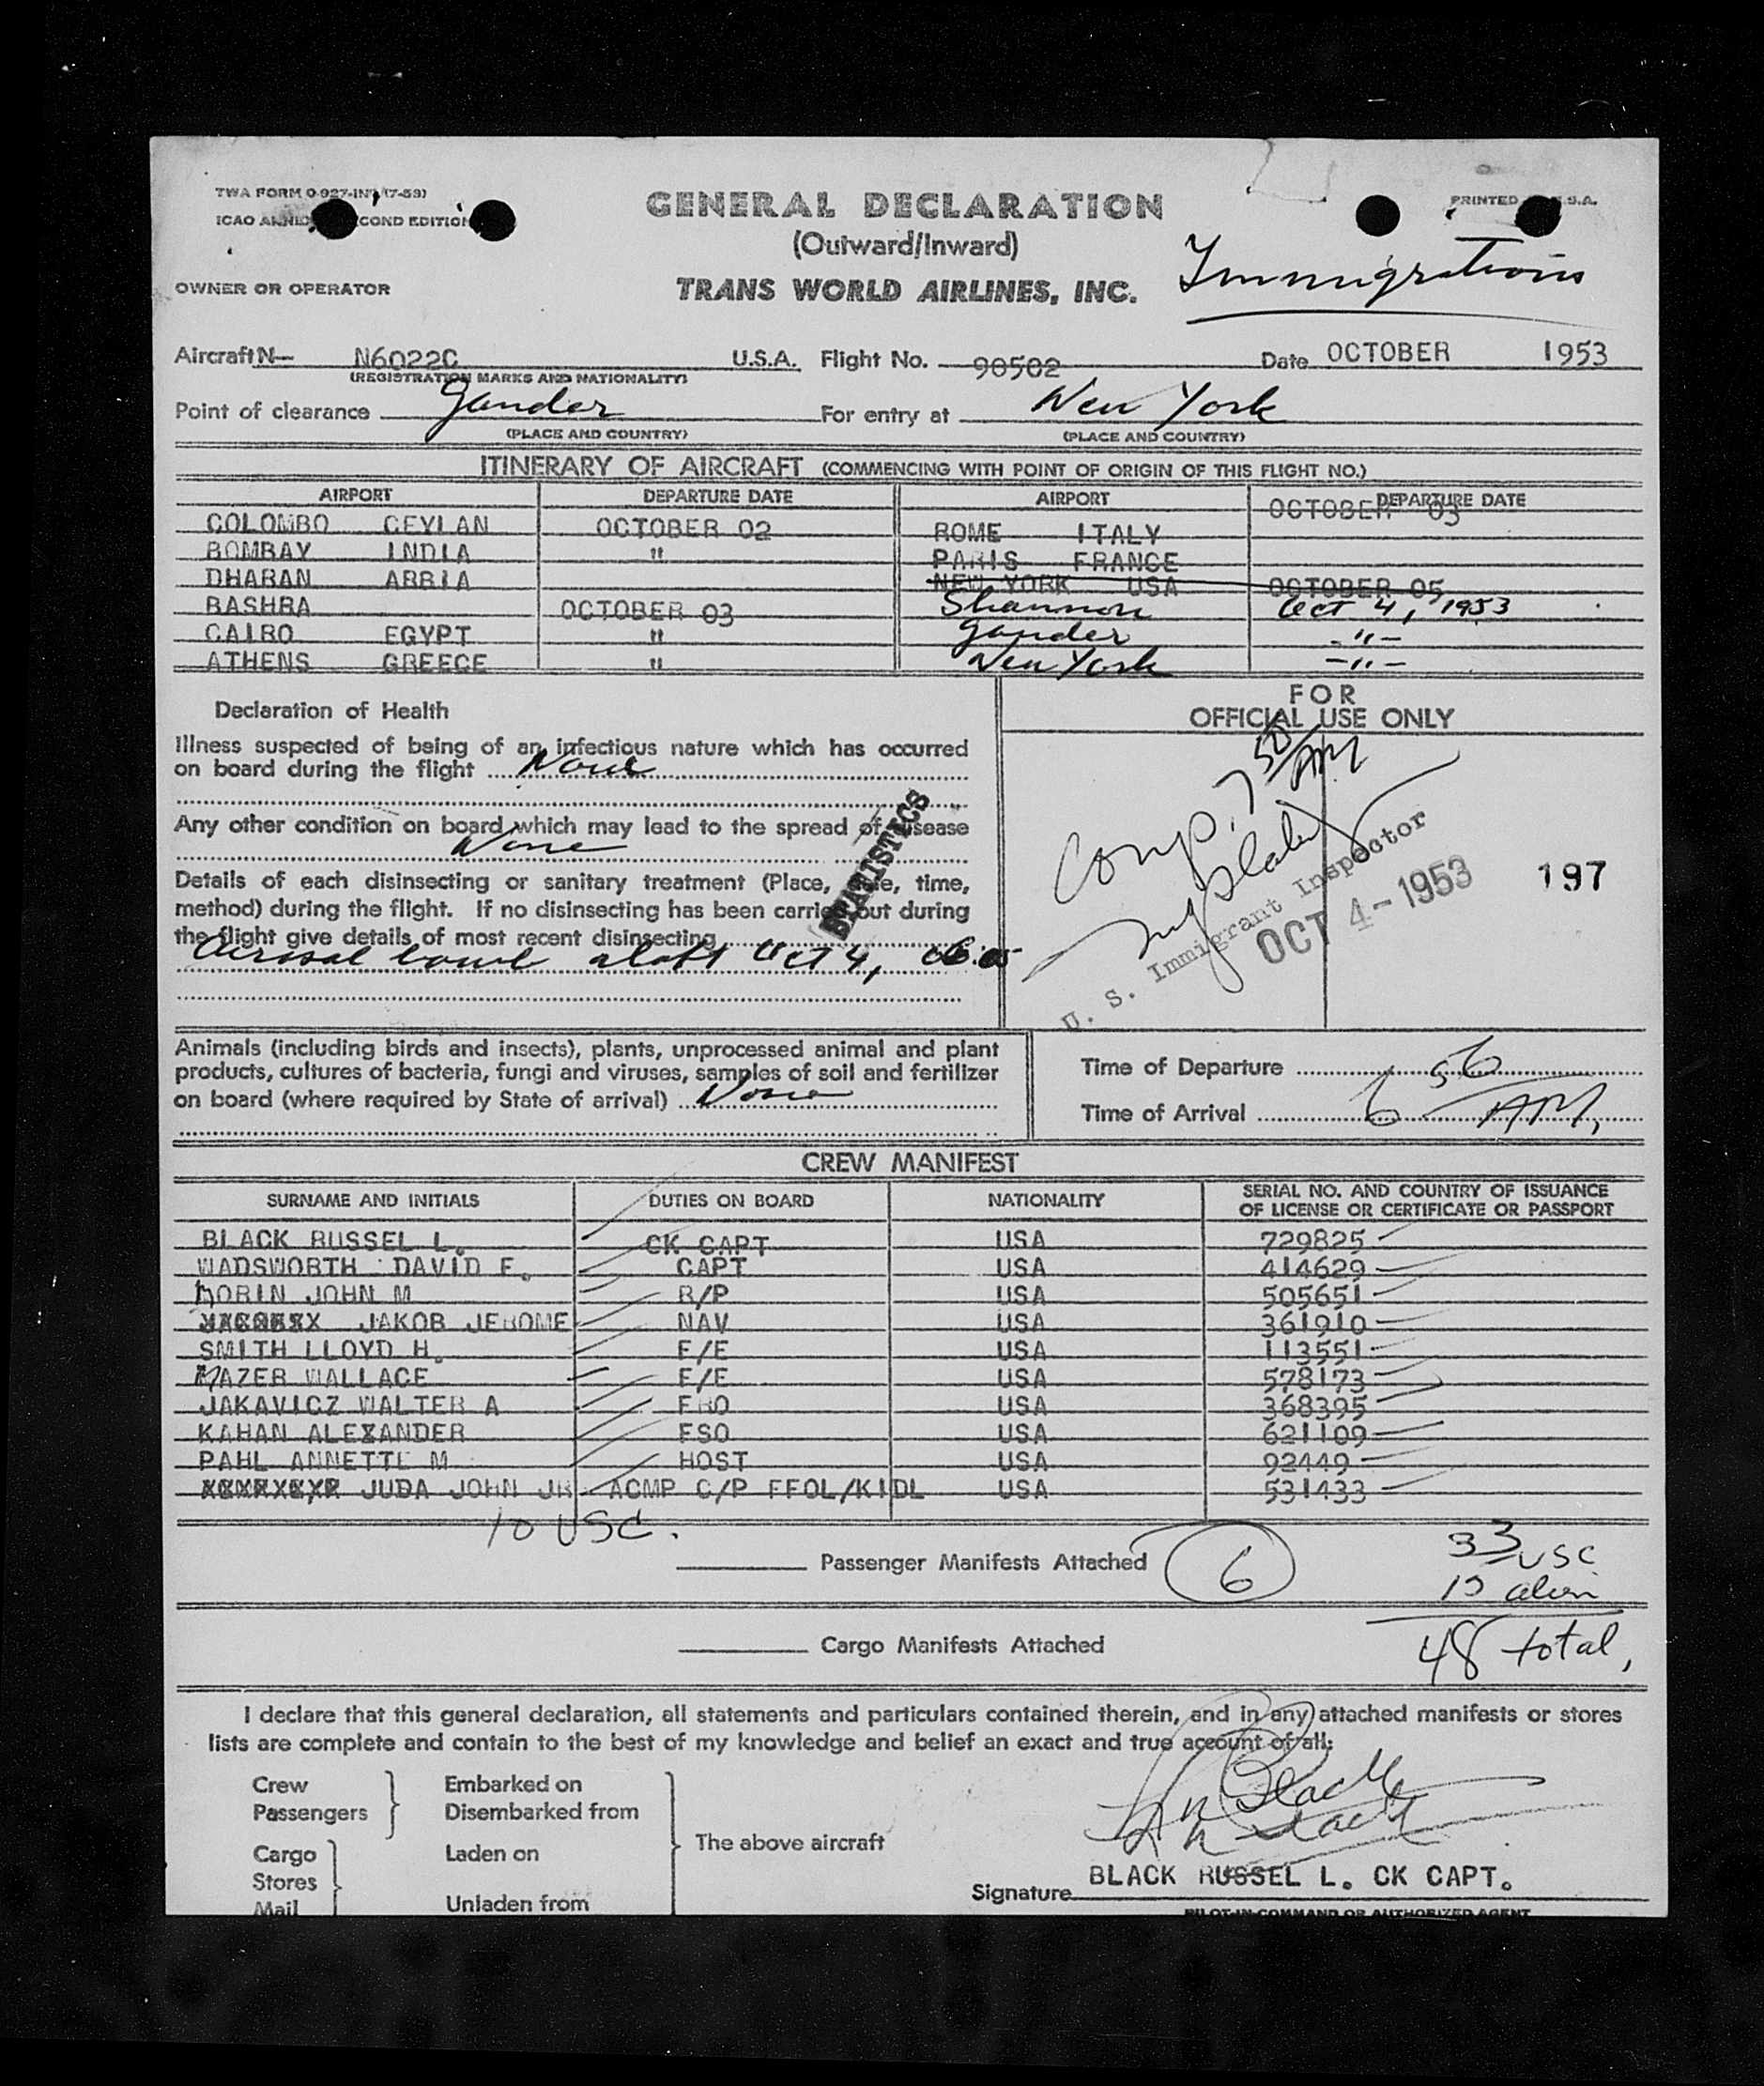 TWA FORM O-927-INT (7-53)
ICAO COND EDITION
PRINTED S.A.
GENERAL DECLARATION
(Outward/Inward)
Immigrations
OWNER OR OPERATOR
TRANS WORLD AIRLINES, INC.
Aircraft N— N6022C U.S.A. Flight No. 90502 Date OCTOBER 1953
(REGISTRATION MARKS AND NATIONALITY)
Point of clearance Gander For entry at New York
(PLACE AND COUNTRY) (PLACE AND COUNTRY)
ITINERARY OF AIRCRAFT (COMMENCING WITH POINT OF ORIGIN OF THIS FLIGHT NO.)
AIRPORT DEPARTURE DATE AIRPORT DEPARTURE DATE
COLOMBO CEYLAN OCTOBER 02 ROME ITALY OCTOBER 03
BOMBAY INDIA " PARIS FRANCE
DHARAN ARBIA NEW YORK USA OCTOBER 05
BASHRA OCTOBER 03 Shannon Oct 4, 1953
CAIRO EGYPT " Gander -"-
ATHENS GREECE " New York -"-
Declaration of Health
Illness suspected of being of an infectious nature which has occurred
on board during the flight None
Any other condition on board which may lead to the spread of disease
None
Details of each disinsecting or sanitary treatment (Place, date, time,
method) during the flight. If no disinsecting has been carried out during
the flight give details of most recent disinsecting
Aerosol bomb aloft Oct 4,
STATISTICS
FOR
OFFICIAL USE ONLY
Comp. 7 50 AM
U. S. Immigrant Inspector
OCT 4- 1953
197
Animals (including birds and insects), plants, unprocessed animal and plant
products, cultures of bacteria, fungi and viruses, samples of soil and fertilizer
on board (where required by State of arrival) None
Time of Departure
Time of Arrival 6 56 AM,
CREW MANIFEST
SURNAME AND INITIALS DUTIES ON BOARD NATIONALITY SERIAL NO. AND COUNTRY OF ISSUANCE
OF LICENSE OR CERTIFICATE OR PASSPORT
BLACK RUSSEL L. CK CAPT USA 729825
WADSWORTH DAVID F. CAPT USA 414629
MORIN JOHN M R/P USA 505651
JAKOB JEROME NAV USA 361910
SMITH LLOYD H. F/E USA 113551
MAZER WALLACE F/E USA 578173
JAKAVICZ WALTER A FRO USA 368395
KAHAN ALEXANDER FSO USA 621109
PAHL ANNETTE M HOST USA 92449
JUDA JOHN JR ACMP C/P FFOL/KIDL USA 531433
10 USC.
Passenger Manifests Attached 6
33 USC
15 alien
48 total,
Cargo Manifests Attached
I declare that this general declaration, all statements and particulars contained therein, and in any attached manifests or stores
lists are complete and contain to the best of my knowledge and belief an exact and true account of all:
Crew Embarked on
Passengers Disembarked from
The above aircraft
Cargo Laden on
Stores
Mail Unladen from
BLACK RUSSEL L. CK CAPT.
Signature
PILOT-IN-COMMAND OR AUTHORIZED AGENT